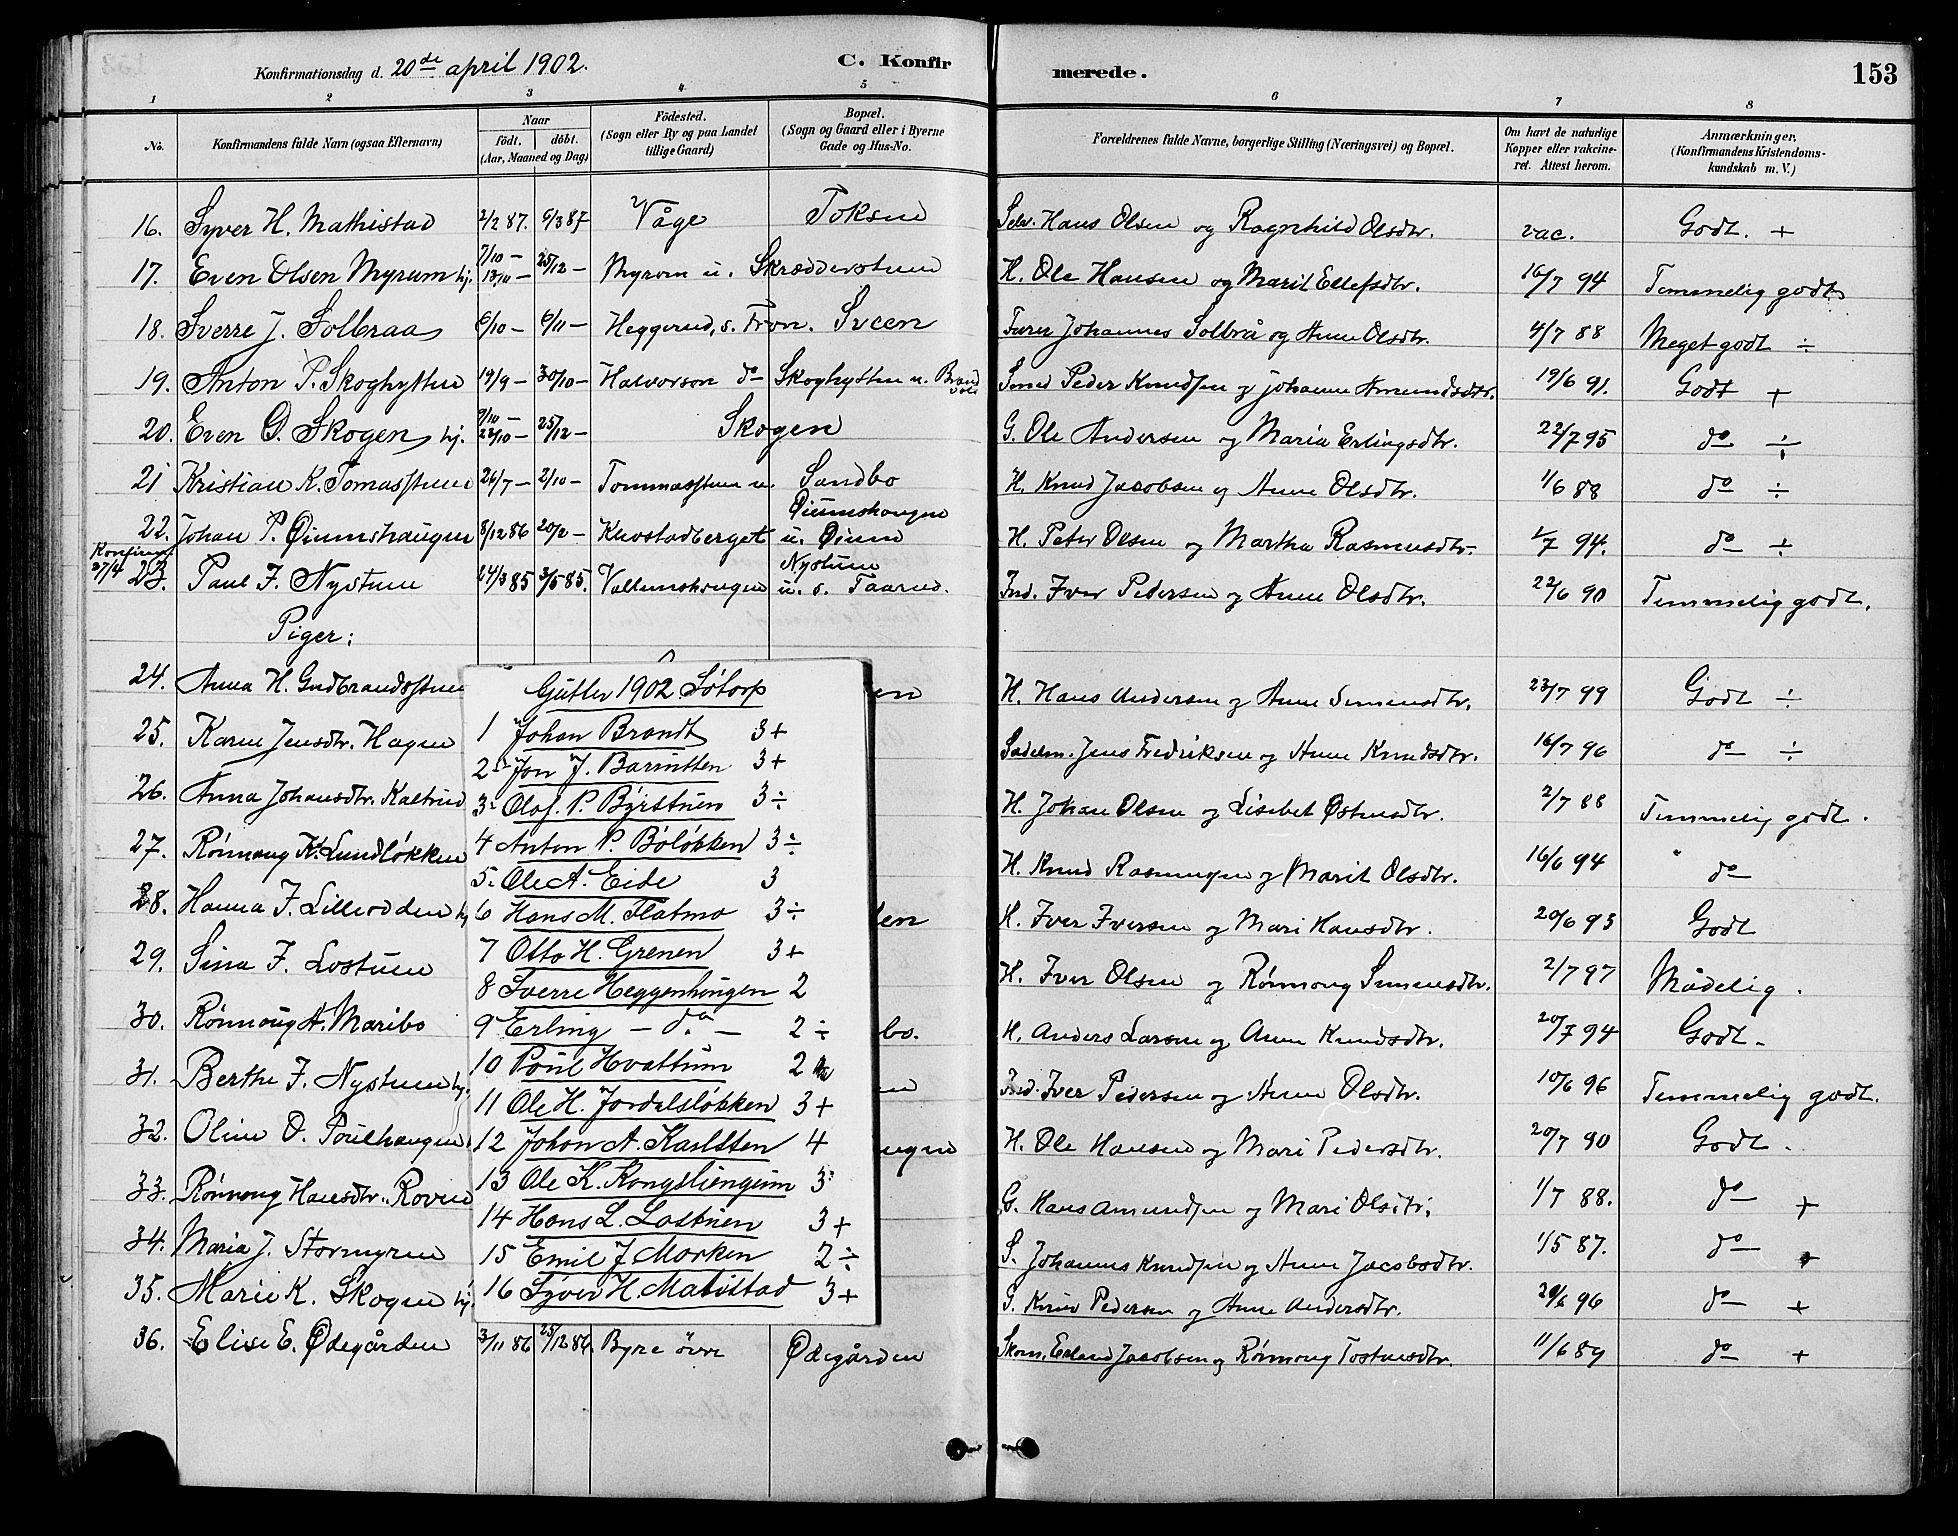 Konfirmationsdag d. 20de april 1902.
C. Konfirmerede.
153
1 2 3 4 5 6 7 8
No.
Konfirmandens fulde Navn (ogsaa Efternavn)
Naar
født. døbt.
(Aar, Maaned og Dag)
Fødested.
(Sogn eller By og paa Landet
tillige Gaard)
Bopæl.
(Sogn og Gaard eller i Byerne
Gade og Hus-No.
Forældrenes fulde Navne, borgerlige Stilling (Næringsvei) og Bopæl.
Om havt de naturlige
Kopper eller vakcine-
ret. Attest herom.
Anmærkninger,
(Konfirmandens Kristendoms-
kundskab m. V.)
16. Syver H. Mathistad 2/2 87. 6/3 87 Våge Toksen Selv. Hans Olsen og Ragnhild Olsdtr. vac. Godt. +
17. Even Olsen Myrum hj. 7/10 — 13/10 — 25/12 — Myrom u. Skrædderstuen H. Ole Hansen og Marit Ellefsdtr. 16/7 94 Temmelig godt
18. Sverre J. Solbraa 6/10 — 6/11 — Heggerud, s. Fron. Sveen Farer Johannes Solbrå og Anne Olsdtr. 4/7 88 Meget godt ÷
19. Anton P. Skoghytten 19/9 — 30/10 — Halvorson do Skoghytten u. Smed Peder Knudsen og Johanne Amundsdtr. 19/6 91. Godt +
20. Even O. Skogen hj. 9/10 — 23/10 — 25/12 — Skogen G. Ole Andersen og Maria Erlingsdtr. 22/7 95 do ÷
21 Kristian K. Tomasstuen 26/7 — 2/10 — Tommasstuen u. Sandbo H. Knud Jacobsen og Anne Olsdtr. 1/6 88 do ÷
22. Johan P. Øiumshaugen 8/12 86 20/2 — Knostadberget Øiumshaugen u. Øium H. Peter Olsen og Martha Rasmusdtr. 1/7 94. do ÷
Konfirm. 27/4 23. Paul I. Nystuen 24/3 85 3/5 85. Vollumshaugen Nystuen u. s. Taarud. Ind. Iver Pedersen og Anne Olsdtr. 22/6 90 Temmelig godt.
Piger:
24. Anna H. Gudbrandsstuen H. Hans Andersen og Anne Simensdtr. 23/7 99 Godt ÷
25. Karen Jensdtr. Hagen Sadelm. Jens Fredriksen og Anne Knudsdtr. 16/7 96 do ÷
26. Anna Johansdtr. Kaltrud H. Johan Olsen og Lisebet Østensdtr. 2/7 88 Temmelig godt.
27. Rønnaug K. Lundløkken H. Knud Rasmusen og Marit Olsdtr. 16/6 94 do
28. Hanna I. Lillerødden hj. H. Iver Iversen og Mari Hansdtr. 20/6 93 Godt
29. Sina I. Lostuen H. Iver Olsen og Rønnaug Simensdtr. 2/7 97 Mådelig.
30. Rønnaug A. Maribo bo. H. Anders Larsen og Anne Knudsdtr. 20/7 94 Godt.
31. Berthe I. Nystuen hj. Ind. Iver Pedersen og Anne Olsdtr. 10/6 96 Temmelig godt.
32. Oline O. Poulhaugen H. Ole Hansen og Mari Pedersdtr. 20/7 90 Godt.
33. Rønnaug Hansdtr. Roven G. Hans Amundsen og Mari Olsdtr. 1/7 88. do +
34. Maria J. Stormyren S. Johannes Knudsen og Anne Jacobsdtr. 1/5 87. do +
35. Marie K. Skogen hj. S. Knud Pedersen og Anne Andersdtr. 20/6 96 do +
36. Elise E. Ødegården 3/11 86 25/12 86. Byre øvre Ødegården Skom. Erland Jacobsen og Rønnaug Tostensdtr. 11/6 89 do +
Gutter 1902 Sötorp
1 Johan Brandt 3+
2 Jon J. Barlitten 3+
3 Olaf. P. Býrstuen 3÷
4 Anton P. Böløkken 3÷
5 Ole A. Eide 3
6 Hans M. Flatmo 3÷
7 Otto H. Grenen 3+
8 Sverre Heggenhaugen 2
9 Erling — do — 2÷
10 Poul Hvattum 2
11 Ole H. Jordalsløkken 3+
12 Johan A. Karlsten 4
13 Ole K. Kongsliengum 3
14 Hans L. Lostuen 3+
15 Emil J Morken 2÷
16 Syver H. Matistad 3+